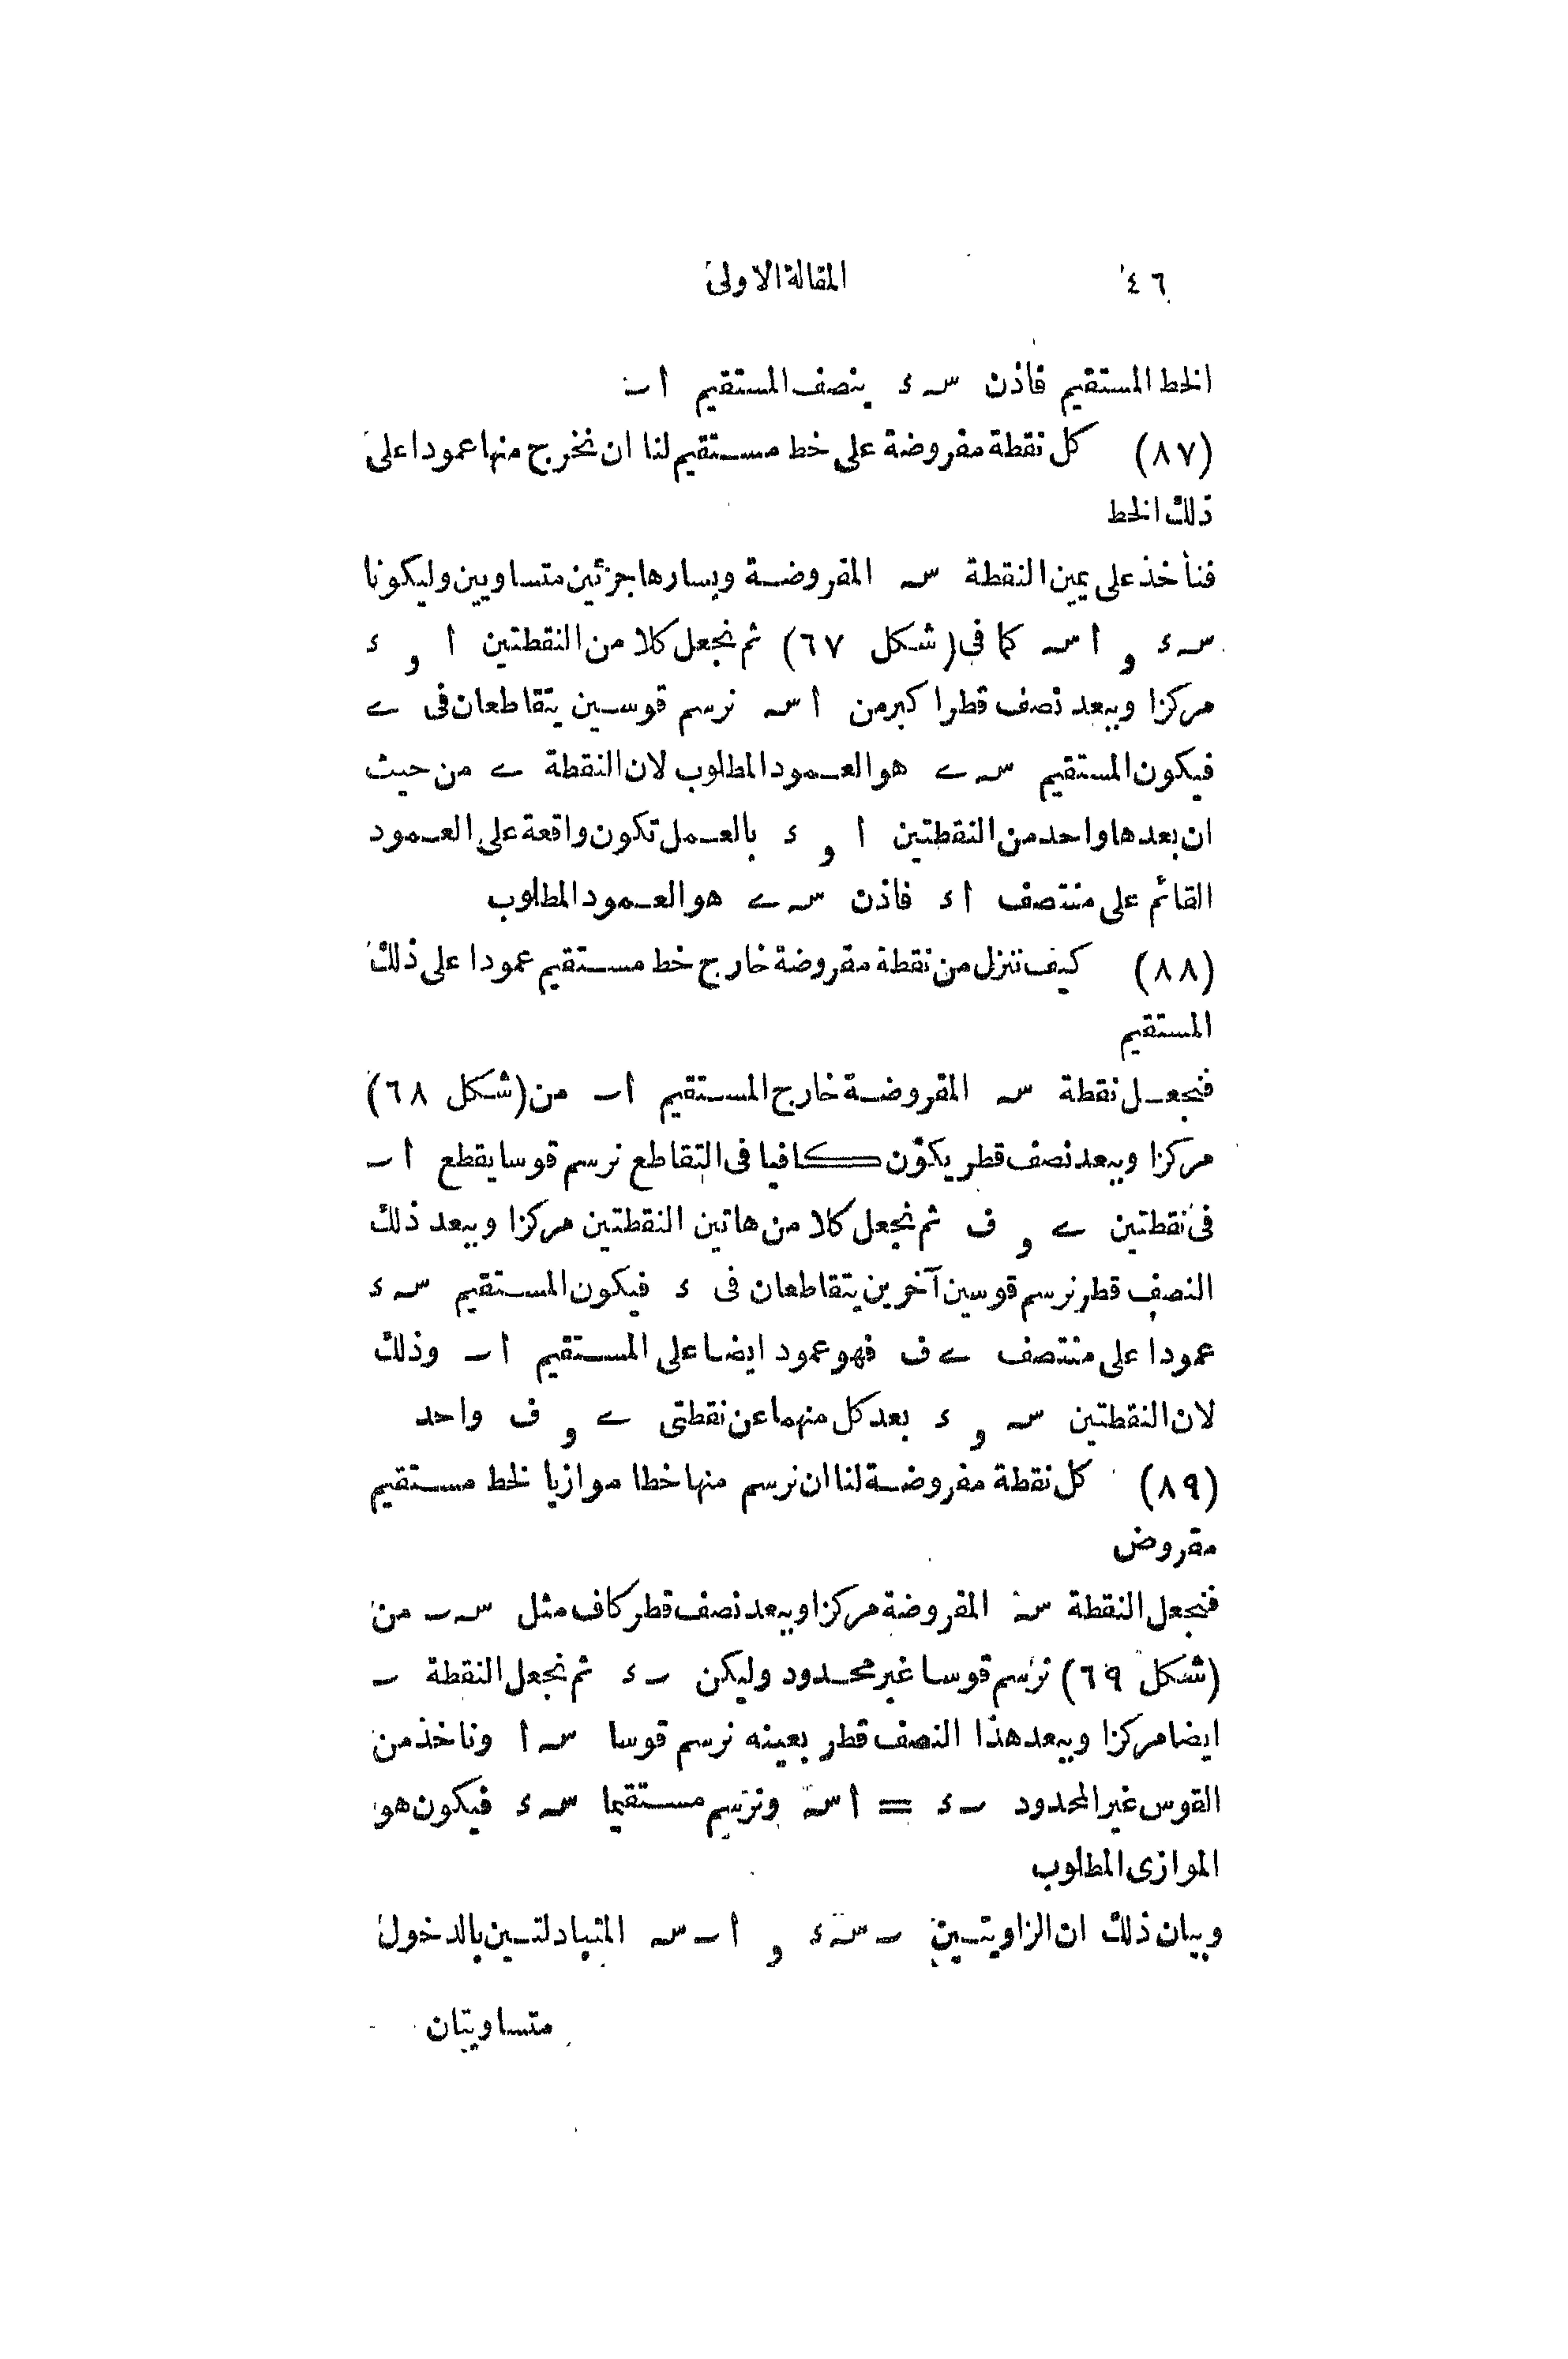 ٤٦ المقالة الاولى
الخط المستقيم فاذن سہ ء ينصف المستقيم ا ب
(٨٧) كل نقطة مفروضة على خط مستقيم لنا ان نخرج منها عمودا على
ذلك الخط
فنأخذ على يمين النقطة سہ المفروضة ويسارها جزئين متساويين وليكونا
سہ ء و ا سہ كما فى (شكل ٦٧) ثم نجعل كلا من النقطتين ا و ء
مركزا وببعد نصف قطر اكبر من ا سہ نرسم قوسين يتقاطعان فى ے
فيكون المستقيم سہ ے هو العمود المطلوب لان النقطة ے من حيث
ان بعدها واحد من النقطتين ا و ء بالعمل تكون واقعة على العمود
القائم على منتصف ا ء فاذن سہ ے هو العمود المطلوب
(٨٨) كيف ننزل من نقطة مفروضة خارج خط مستقيم عمودا على ذلك
المستقيم
فنجعل نقطة سہ المفروضة خارج المستقيم ا ب من (شكل ٦٨)
مركزا وببعد نصف قطر يكون كافيا فى التقاطع نرسم قوسا يقطع ا ب
فى نقطتين ے و ف ثم نجعل كلا من هاتين النقطتين مركزا وببعد ذلك
النصف قطر نرسم قوسين آخرين يتقاطعان فى ء فيكون المستقيم سہ ء
عمودا على منتصف ے ف فهو عمود ايضا على المستقيم ا ب وذلك
لان النقطتين سہ و ء بعد كل منهما عن نقطتى ے و ف واحد
(٨٩) كل نقطة مفروضة لنا ان نرسم منها خطا موازيا لخط مستقيم
مفروض
فنجعل النقطة سہ المفروضة مركزا وببعد نصف قطر كاف مثل سہ ب من
(شكل ٦٩) نرسم قوسا غير محدود وليكن ب ء ثم نجعل النقطة ب
ايضا مركزا وببعد هذا النصف قطر بعينه نرسم قوسا سہ ا وناخذ من
القوس غير المحدود ب ء = ا سہ ونرسم مستقيما سہ ء فيكون هو
الموازى المطلوب
وبيان ذلك ان الزاويتين ب سہ ء و ا ب سہ المتبادلتين بالدخول
متساويتان